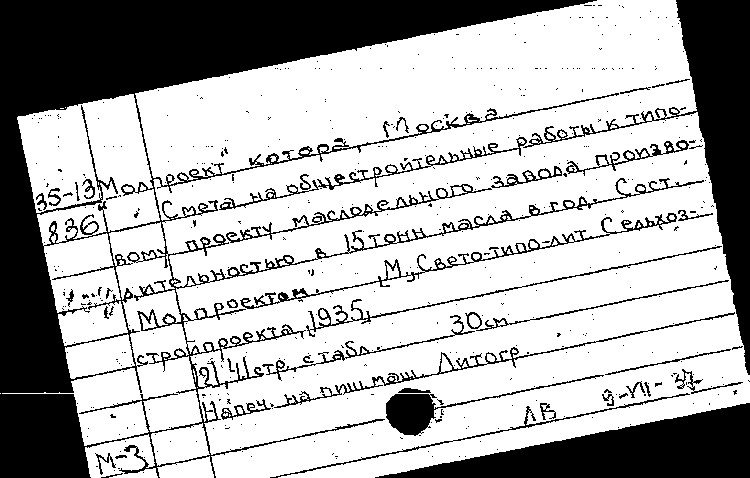 35-13
836
„Молпроект", контора, Москва.
Смета на общестроительные работы к типо-
вому проекту маслодельного завода, произво-
дительностью в 15 тонн масла в год. Сост.
„Молпроектом". [М], Свето-типо-лит. Сельхоз-
стройпроекта, [1935]
[2], 41 стр. с табл. 30 см
Напеч. на пиш. маш. Литогр.
ЛВ 9-VII-37
М-3